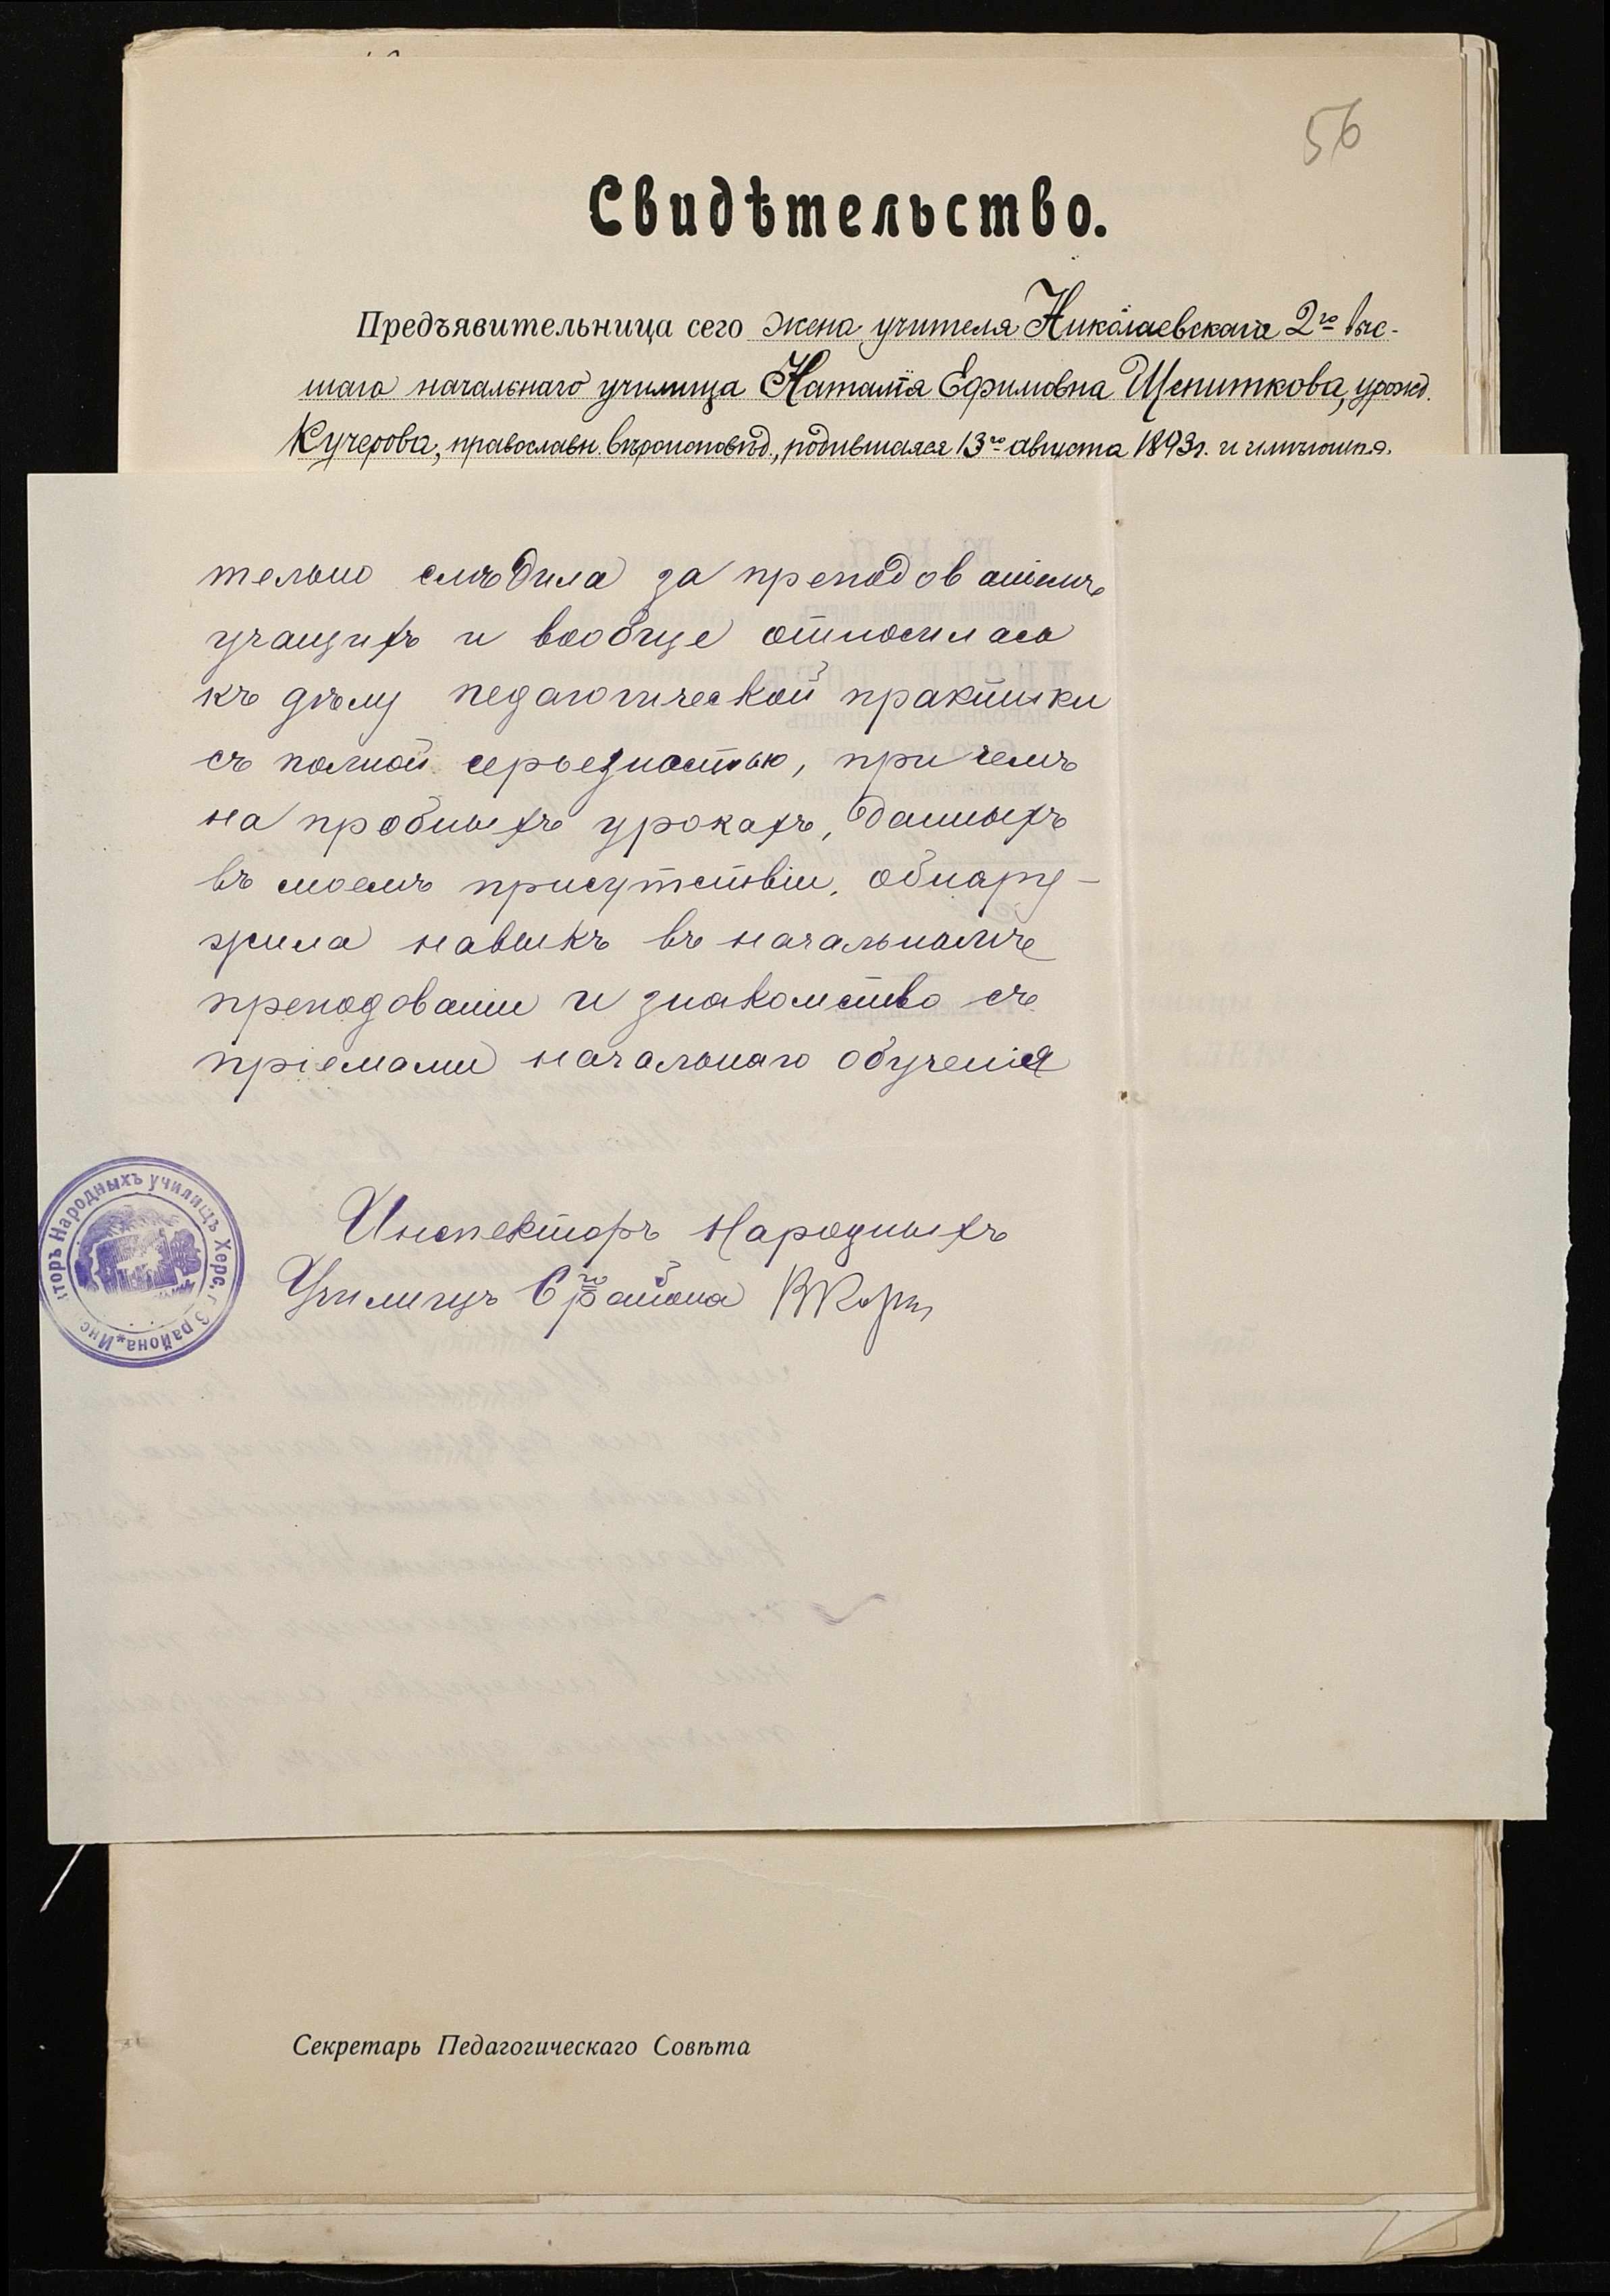 56
Свидѣтельство.
Предъявительница сего жена учителя Николаевскаго 2го выс-
шаго начальнаго училища Наталія Ефимовна Щепиткова, урожд.
Кучерова, православн. вѣроисповѣд., родившаяся 13го августа 1893г. и имѣющая
тельно слѣдила за преподованіемъ
учащихъ и вообще относилась
къ дѣлу педагогической практики
съ полной серьезностью, при чемъ
на пробныхъ урокахъ, данныхъ
въ моемъ присутствіи, обнару-
жила навыкъ въ начальномъ
преподованіи и знакомство съ
пріемами начальнаго обученія
Инспекторъ Народныхъ
Училищъ 6го района
торъ Народныхъ училищъ Херс. г. района * Инс
Секретарь Педагогическаго Совѣта